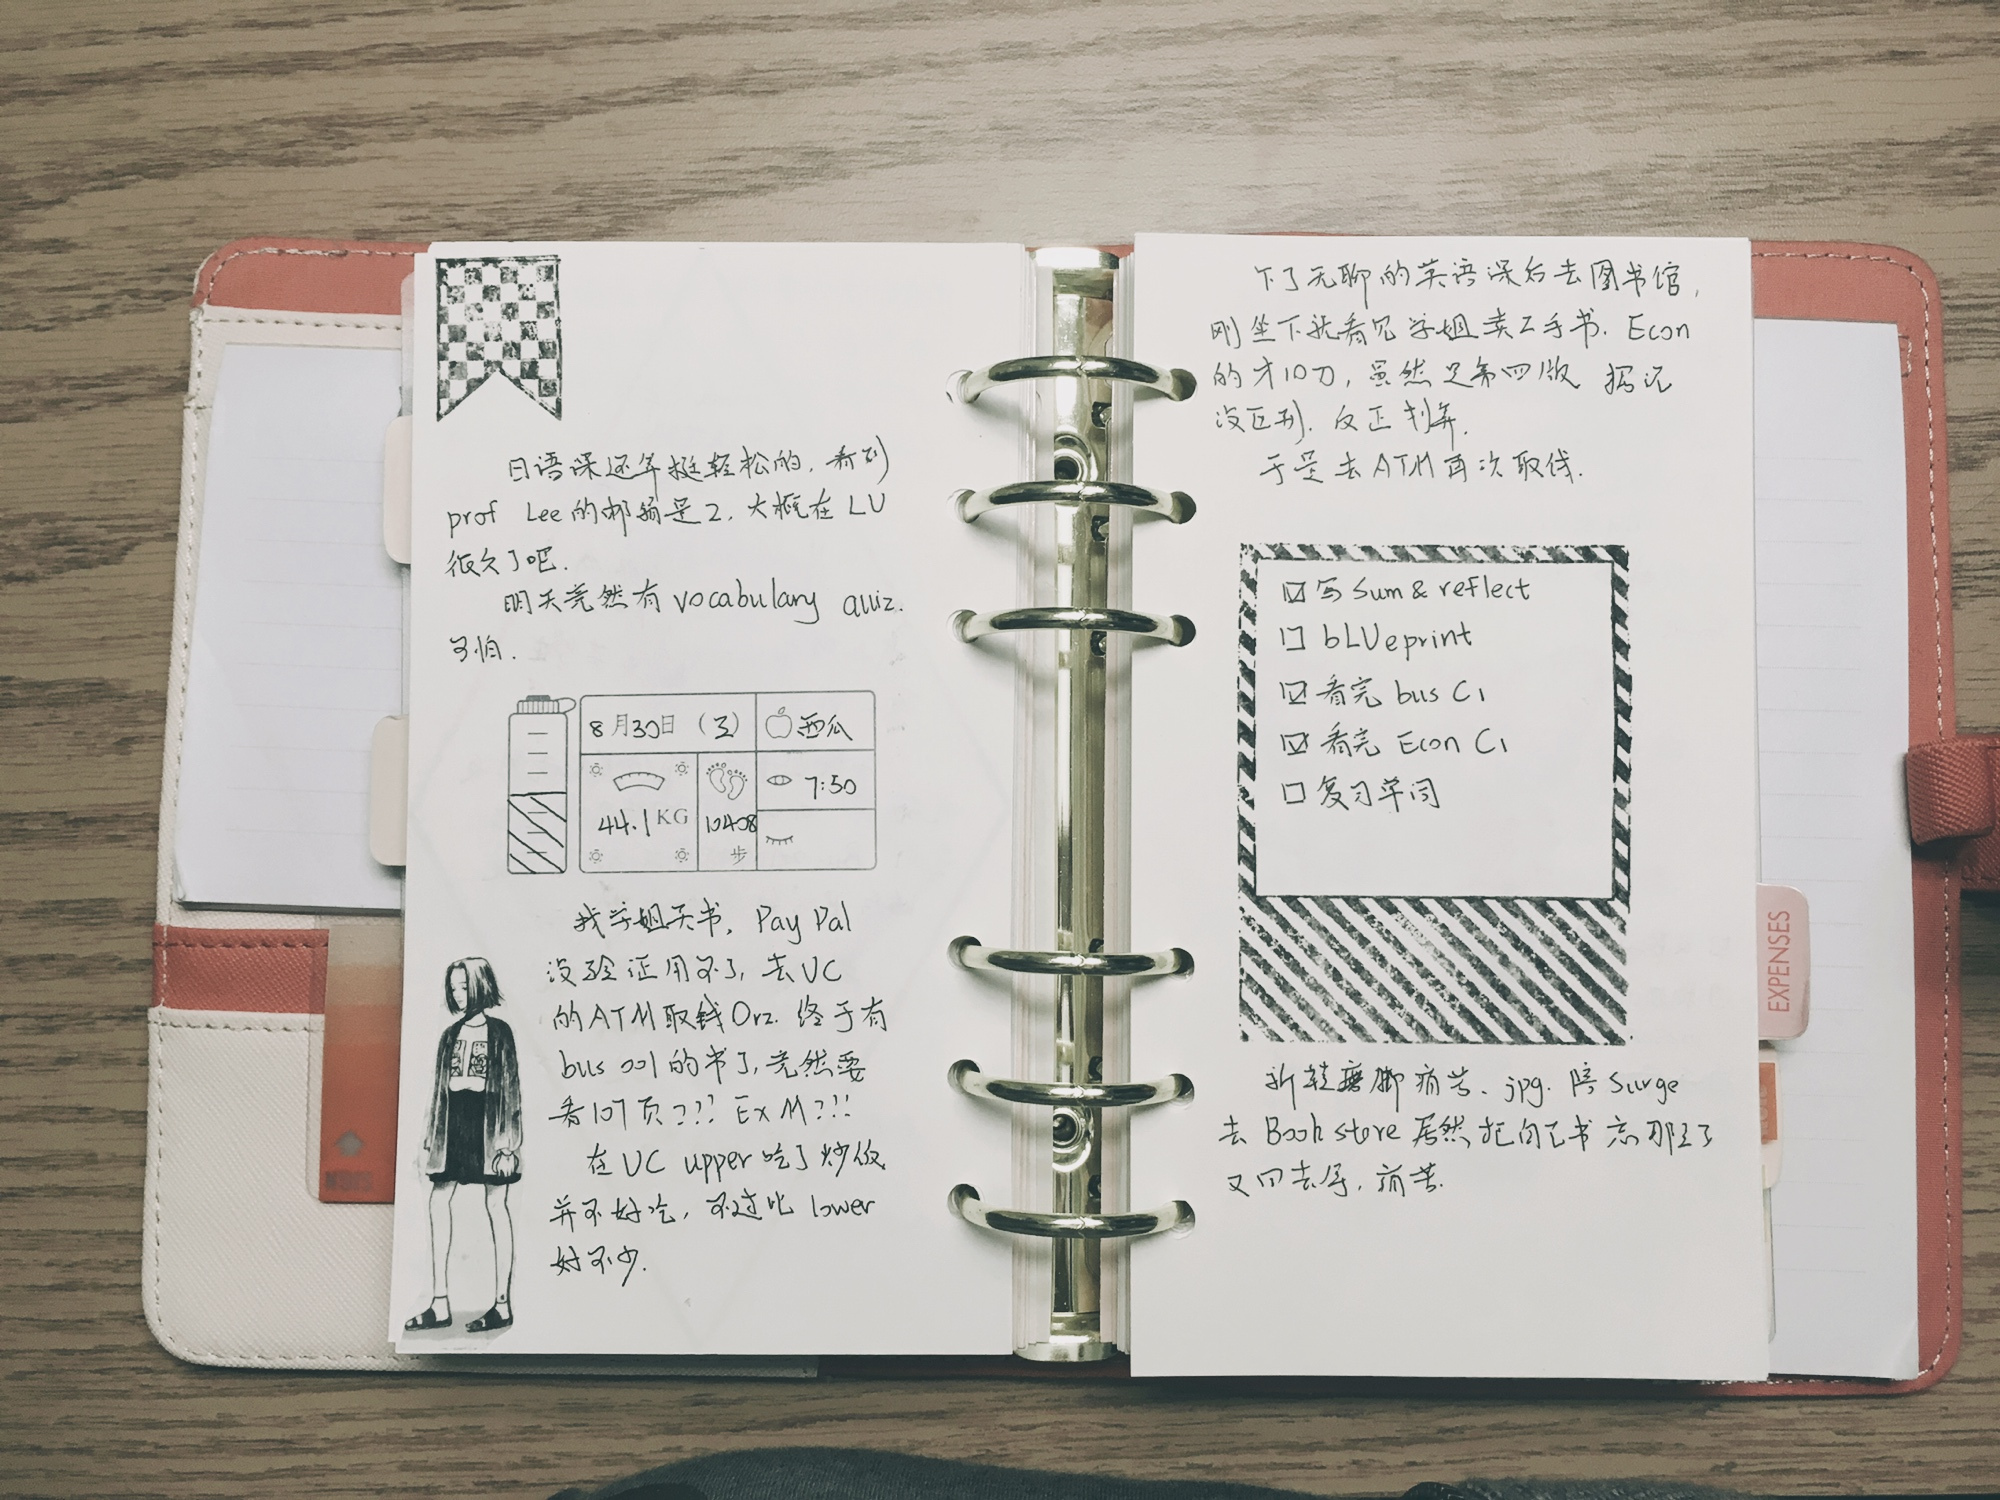 日语课还算挺轻松的，看到
prof Lee的邮箱是2，大概在LU
很久了吧．
明天竟然有vocabulary quiz．
可怕．
8月30日（三）
西瓜
7:50
44.1KG
10408
步
找学姐买书，PayPal
没验证用不了，去UC
的ATM取钱Orz．终于有
bus 001的书了，竟然要
看107页？？！EXM？！！
在UC upper吃了炒饭
并不好吃，不过比lower
好不少．
NOTES
下了无聊的英语课后去图书馆，
刚坐下就看见学姐卖二手书．Econ
的才10刀，虽然是第四版
没区别．反正划算．
于是去ATM再次取钱．
写Sum & reflect
bLUeprint
看完 bus C1
看完 Econ C1
复习单词
新鞋磨脚痛苦．jpg．陪Surge
去Book store居然把自己书忘那了
又回去拿，痛苦．
EXPENSES